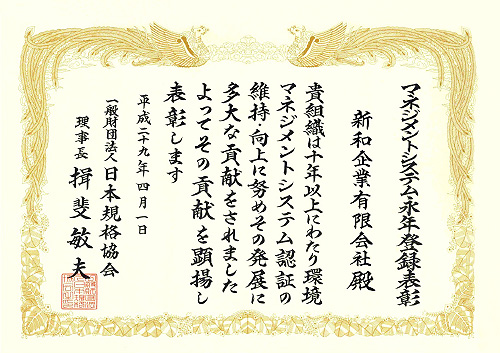 マネジメントシステム永年登録表彰
新和企業有限会社殿
貴組織は十年以上にわたり環境
マネジメントシステム認証の
維持・向上に努めその発展に
多大な貢献をされました
よってその貢献を顕揚し
表彰します
平成二十九年四月一日
一般財団法人日本規格協会
理事長 揖斐敏夫